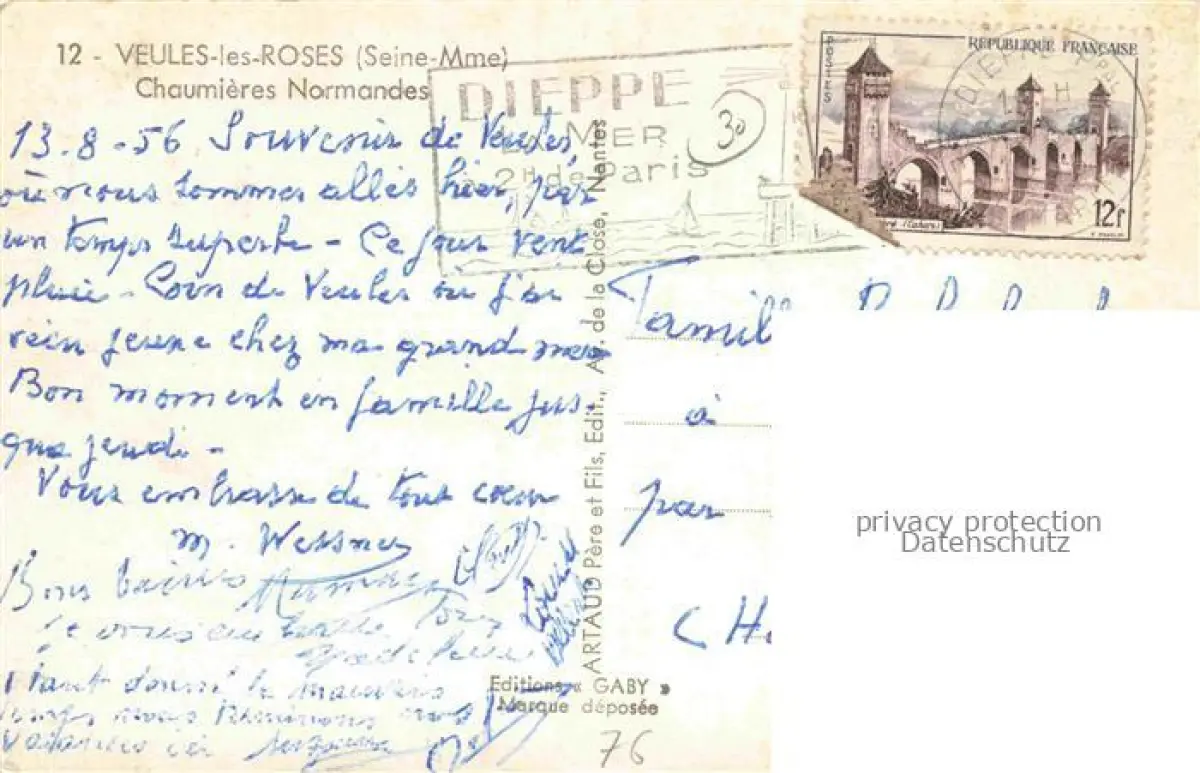 12 - VEULES-les-ROSES (Seine-Mme)
Chaumières Normandes
DIEPPE
MER
2H de Paris
30
POSTES
REPUBLIQUE FRANÇAISE
DIEPPE
(Cahors)
12f
13-8-56 Souvenir de Veules,
où nous sommes allés hier, par
un temps superbe - Ce jour vent
pluie - Coin de Veules où j'ai
jeune chez ma grand mère
Bon moment en famille jus-
que jeudi -
Vous embrasse de tout cœur
M.
Bons baisers
Je vous embrasse
Etant donné le mauvais
temps nous terminons nos
vacances ici
ARTAUD Père et Fils, Edit., Av. de la Close, Nantes
Editions « GABY »
Marque déposée
76
Famille
à
par
(H
privacy protection
Datenschutz